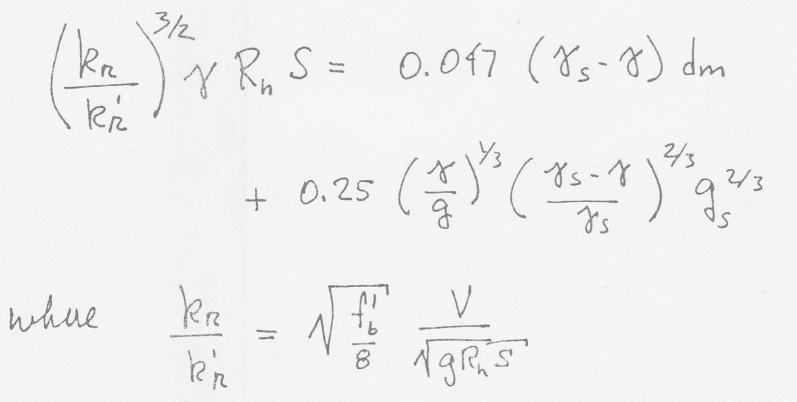 (k_r / k_r')^{3/2} γ R_h S = 0.047 (γ_s - γ) d_m
+ 0.25 (γ / g)^{1/3} ((γ_s - γ) / γ_s)^{2/3} g_s^{2/3}
where k_r / k_r' = √(f_b' / 8) V / √(g R_h S)